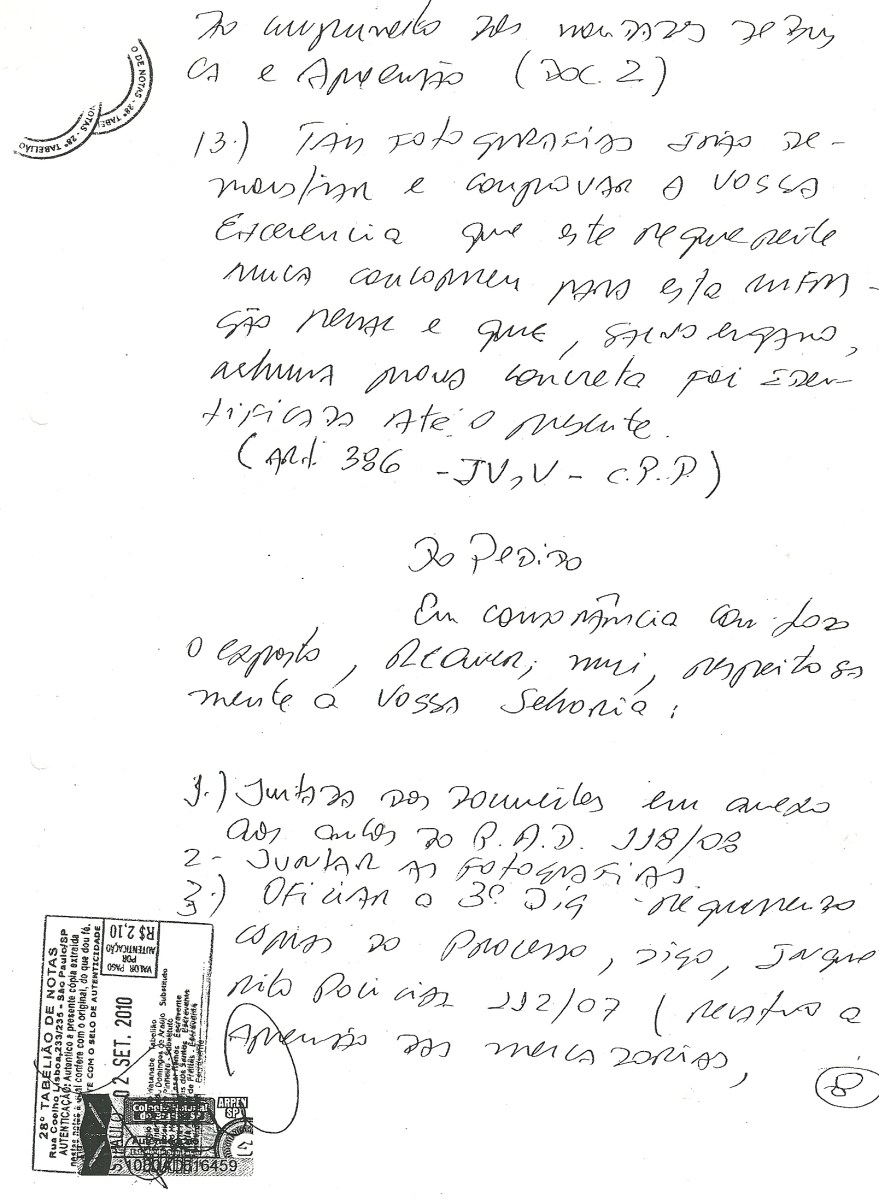 Do cumprimento dos mandados de Bus
ca e Apreensão (Doc. 2)
O DE NOTAS - 28º TABELIÃO
NOTAS - 28º TABELIÃO
13.) Tais fotografias irão de-
monstrar e comprovar a Vossa
Excelencia que este requerente
nunca concorreu para esta infra-
ção penal e que, salvo engano,
nenhuma prova concreta foi iden-
tificada até o presente.
(Art. 386 - IV, V - C.P.P)
Do Pedido
Em consonância com todo
o exposto, requer, mui, respeitosa
mente a Vossa Senhoria:
1.) Juntada dos documentos em anexo
aos autos do P.A.D. 118/08
2- Juntar as fotografias
3.) Oficiar a 3ª Dig requerendo
copias do Processo, digo, Inque
rito Policial 112/07 (relativo a
Apreensão das mercadorias,
8
28º TABELIÃO DE NOTAS
Rua Coelho Lisboa, 233/235 - São Paulo/SP
AUTENTICAÇÃO: Autentico a presente cópia extraída
nestas notas a qual confere com o original, do que dou fé.
TE COM O SELO DE AUTENTICIDADE
02 SET. 2010
VALOR PAGO
POR
AUTENTICAÇÃO
R$ 2,10
Colégio Notarial
do Brasil
ARPEN
SP
1080AD516459